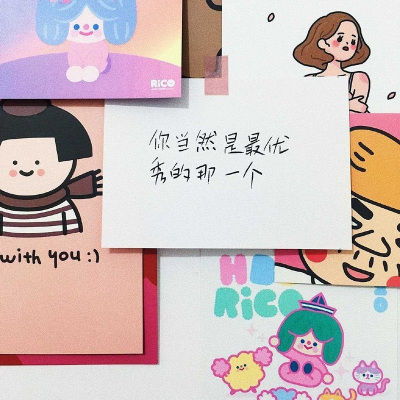 RiCO
你当然是最优
秀的那一个
with you :)
RiCO